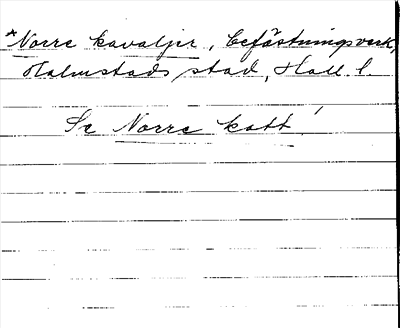 *Norre kavaljer, befästningsverk,
Halmstads stad, Hall. l.
Se Norre katt!